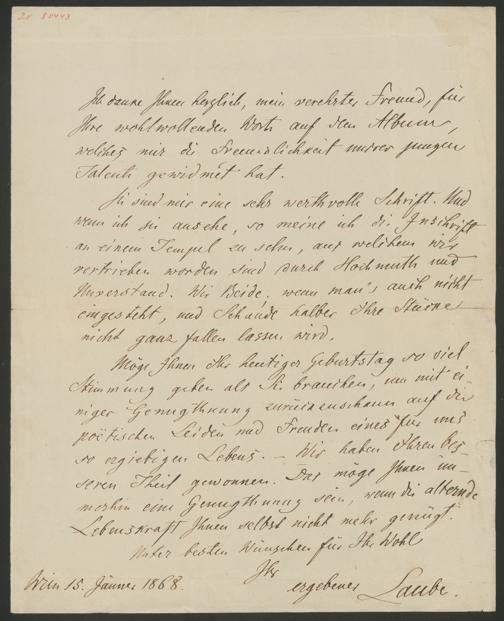 Ich danke Ihnen herzlich, mein verehrter Freund, für
Ihre wohlwollenden Worte auf dem Album,
welches mir die Freundlichkeit unsrer jungen
Talente gewidmet hat.
Sie sind mir eine sehr werthvolle Schrift. Und
wenn ich sie ansehe, so meine ich die Inschrift
an einem Tempel zu sehn, aus welchem wir
vertrieben worden sind durch Hochmuth und
Unverstand. Wir Beide, wenn man's auch nicht
eingesteht, und Schande halber Ihre Stücke
nicht ganz fallen lassen wird.
Möge Ihnen Ihr heutiger Geburtstag so viel
Stimmung geben als Sie brauchen, um mit ei-
niger Genugthuung zurückzuschaun auf die
poëtischen Leiden und Freuden eines für uns
so ergiebigen Lebens. — Wir haben Ihren bes-
seren Theil gewonnen. Das möge Ihnen im-
merhin eine Genugthuung sein, wenn die alternde
Lebenskraft Ihnen selbst nicht mehr genügt.
Unter besten Wünschen für Ihr Wohl
Ihr
Wien 15. Jänner 1868.
ergebener Laube.